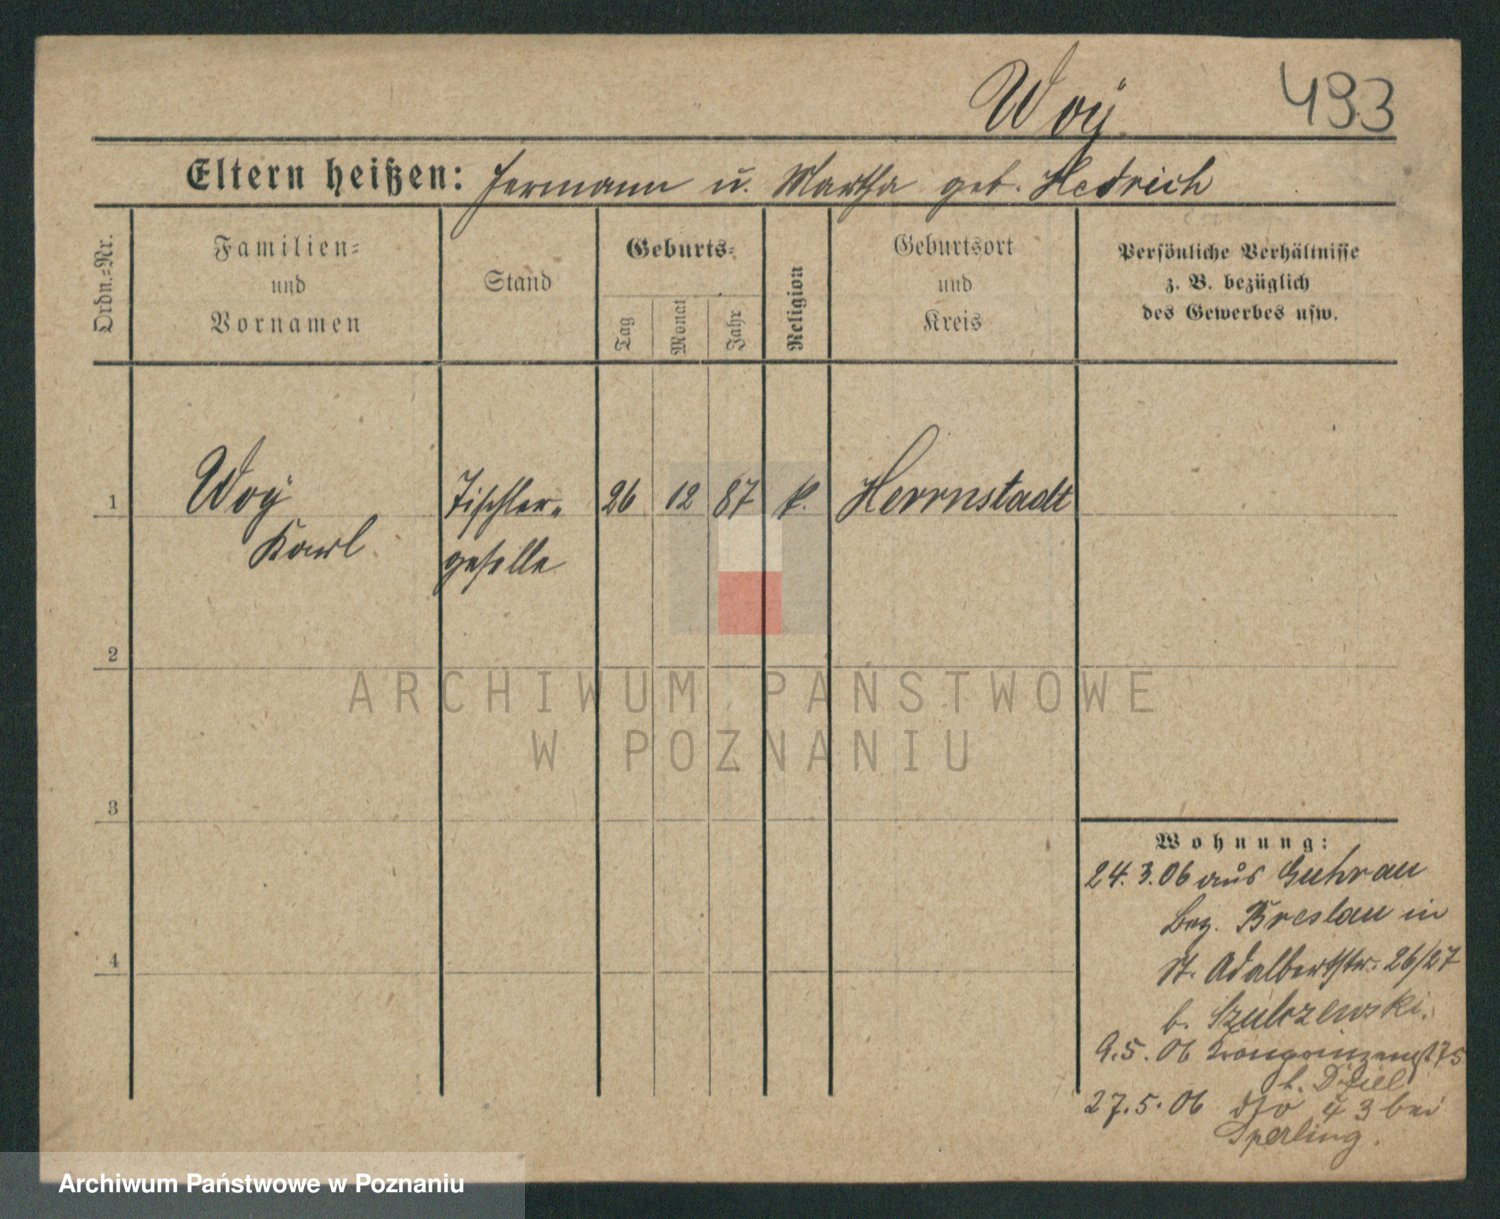 Woÿ 493
Eltern heißen: Hermann u. Martha geb. Hedrich
Ordn.-Nr.
Familien-
und
Vornamen
Stand
Geburts-
Tag
Monat
Jahr
Religion
Geburtsort
und
Kreis
Persönliche Verhältnisse
z. B. bezüglich
des Gewerbes usw.
1
Woÿ
Karl
Tischler-
geselle
26 12 87 k. Herrnstadt
2
3
4
Wohnung:
24.3.06 aus Guhrau
Bez. Breslau in
St. Adalbertstr. 26/27
b. Szulczewski.
9.5.06 Kronprinzenst 75
b.
27.5.06 dto 43 bei
Sperling.
ARCHIWUM PAŃSTWOWE
W POZNANIU
Archiwum Państwowe w Poznaniu